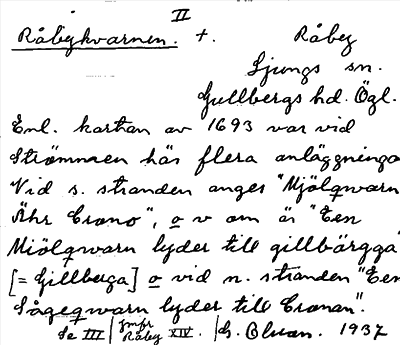 II
Råbykvarnen. +. Råby
Ljungs sn.
Gullbergs hd. Ögl.
Enl. kartan av 1693 var vid
Strömmen här flera anläggninga
Vid s. stranden anges "Mjölqwarn
Ähr Crono", o v om är "Een
Miölqwarn lyder till gillbärgga
[= Gillberga] o vid n. stranden "Een
Sågeqwarn lyder till Cronan".
Se III | Jmfr Råby XIV. | G. 1937